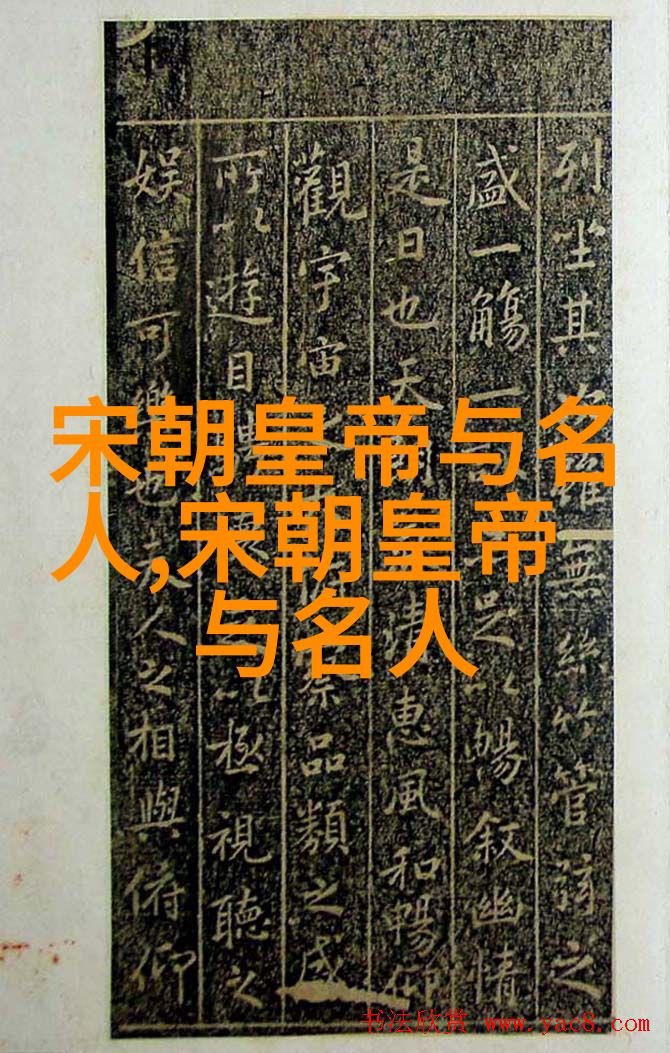 列坐其雖無絲竹管弦之
盛一觴一足以暢叙幽情
是日也天清惠風和暢仰
觀宇宙察品類之盛
所以遊目以極視聽之
娱信可樂也夫人之相與俯仰
宋朝皇帝与名
人,宋朝皇帝
与名人
书法欣赏 www.yac8.com